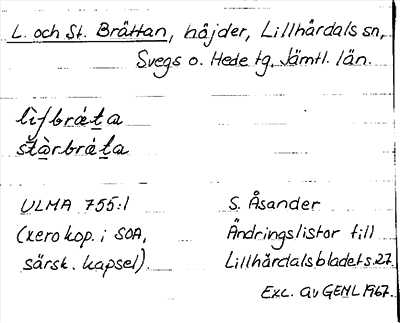 L. och St. Bråttan, höjder, Lillhärdals sn,
Svegs o. Hede tg, Jämtl. län.
lìfbrá̀ta
stàrbrá̀ta
ULMA 755:1
(xerokop. i SOA,
särsk. kapsel).
S. Åsander
Ändringslistor till
Lillhärdalsbladet s.27.
Exc. av GENL 1967.